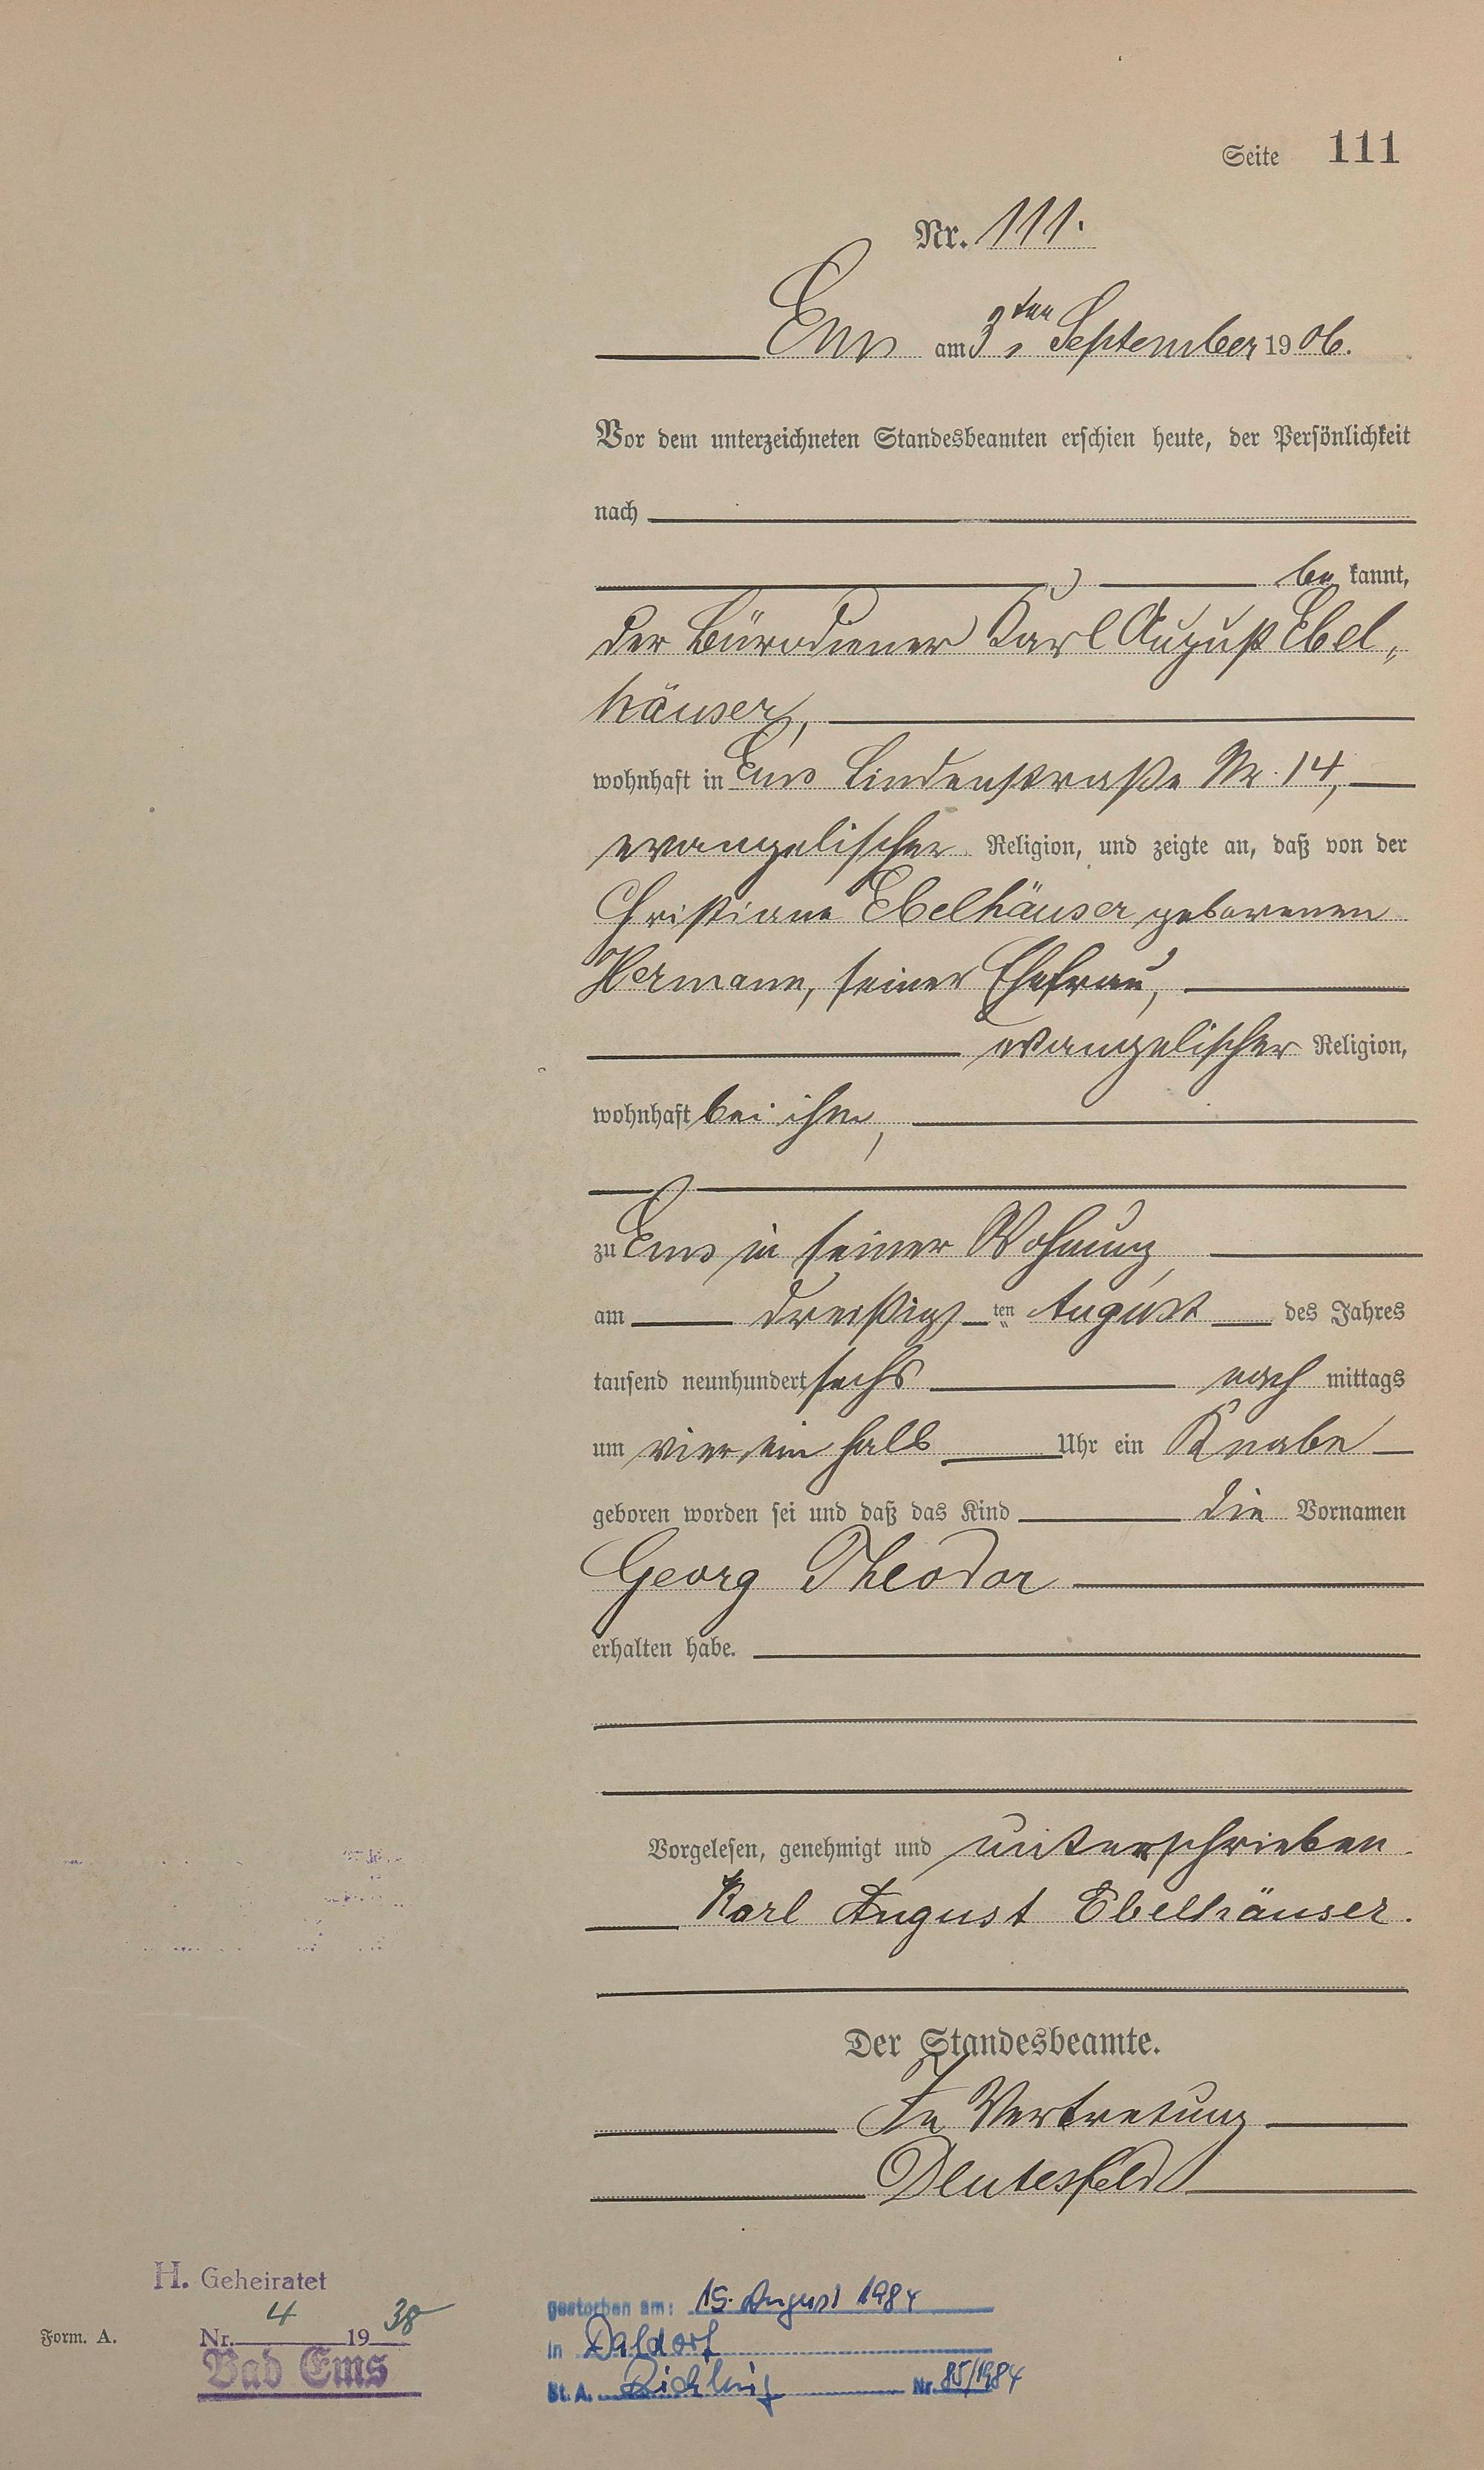 Seite 111
Nr. 111.
Ems am 3ten September 1906.
Vor dem unterzeichneten Standesbeamten erschien heute, der Persönlichkeit
nach
, be kannt,
der Bürodiener Karl August Ebel„
häuser,
wohnhaft in Ems Lindenstraße Nr. 14,
evangelischer Religion, und zeigte an, daß von der
Christiane Ebelhäuser geborenen
Hermann, seiner Ehefrau,
evangelischer Religion,
wohnhaft bei ihm,
zu Ems in seiner Wohnung,
am dreißigs ten August des Jahres
tausend neunhundert sechs nach mittags
um vier, ein halb Uhr ein Knabe
geboren worden sei und daß das Kind die Vornamen
Georg Theodor
erhalten habe.
Vorgelesen, genehmigt und unterschrieben.
Karl August Ebelhäuser.
Der Standesbeamte.
In Vertretung
H. Geheiratet
Nr. 4 1938
Bad Ems
Form. A.
gestorben am: 15. August 1984
in Daldorf
St. A. Rickling Nr. 85/1984